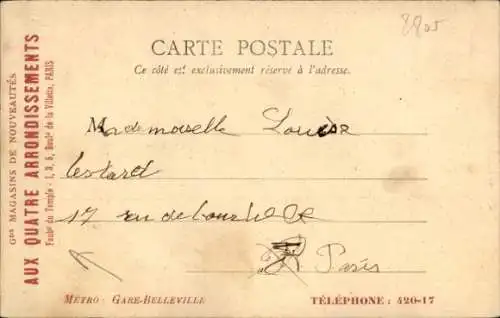 8805
CARTE POSTALE
Ce côté est exclusivement réservé à l'adresse.
Gds MAGASINS DE NOUVEAUTÉS
AUX QUATRE ARRONDISSEMENTS
Faubg du Temple - 1, 3, 5, Bould de la Villette, PARIS
Mademoiselle Louise
17 rue de
Paris
MÉTRO: GARE-BELLEVILLE
TÉLÉPHONE: 420-17